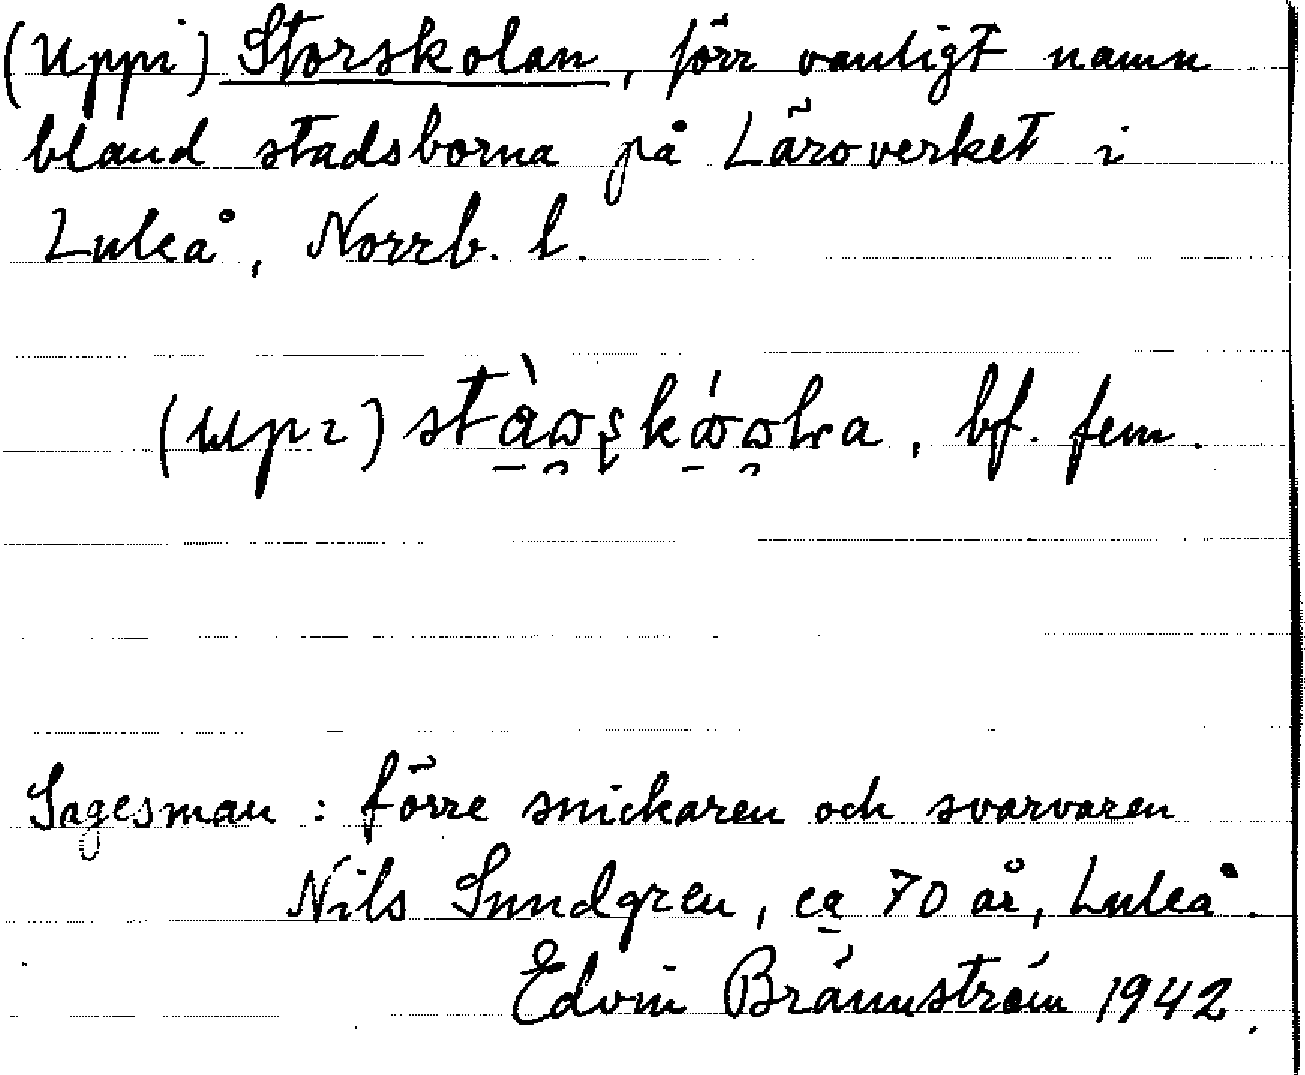 (Uppi) Storskolan, förr vanligt namn
bland stadsborna på Läroverket i
Luleå, Norrb. l.
bf. fem.
Sagesman: förre snickaren och svarvaren
Nils Sundgren, ca 70 år, Luleå.
Edvin Brännström 1942.